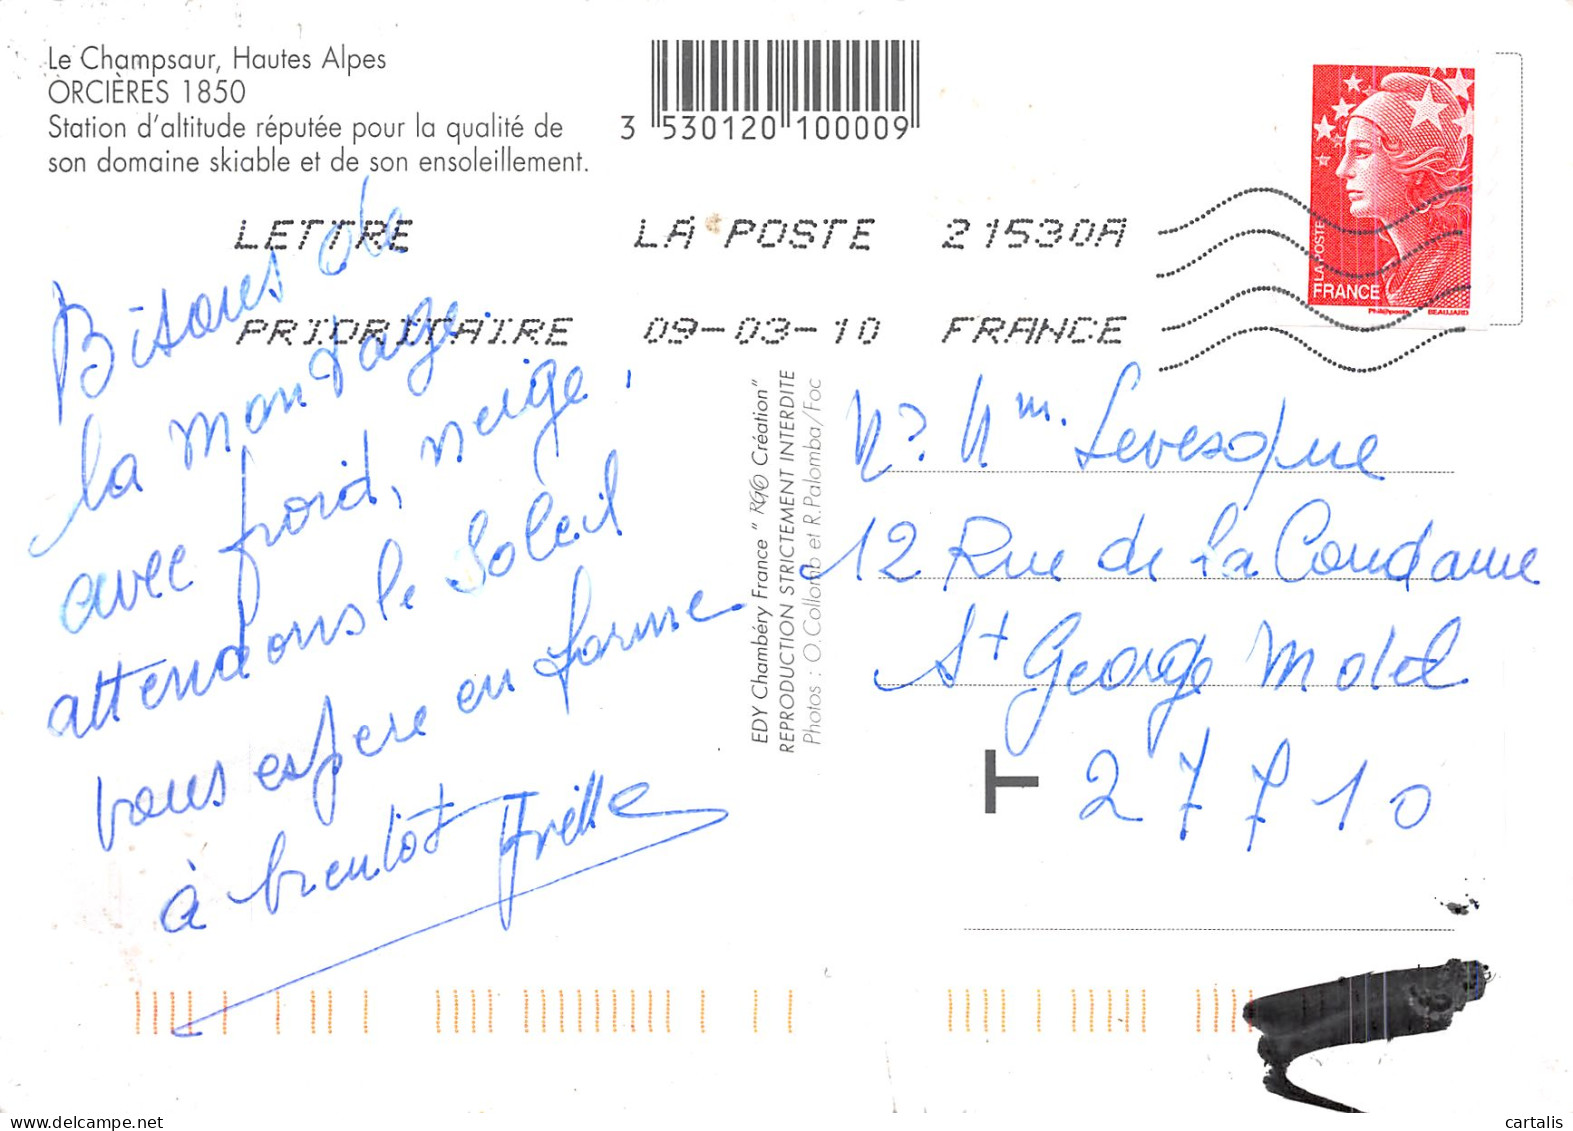 Le Champsaur, Hautes Alpes
ORCIÈRES 1850
Station d'altitude réputée pour la qualité de
son domaine skiable et de son ensoleillement.
3 530120 100009
LA POSTE
FRANCE
Phil@poste BEAUJARD
LETTRE LA POSTE 21530A
PRIORITAIRE 09-03-10 FRANCE
Bisous de
la montage
avec froid, neige,
attendons le Soleil
vous espere en forme
à bientôt
EDY Chambéry France " RGO Création"
REPRODUCTION STRICTEMENT INTERDITE
Photos : O.Collomb et R.Palomba/Foc
Mr Mme. Levesque
12 Rue de la Coudanne
St George Motel
T
27710
cartalis